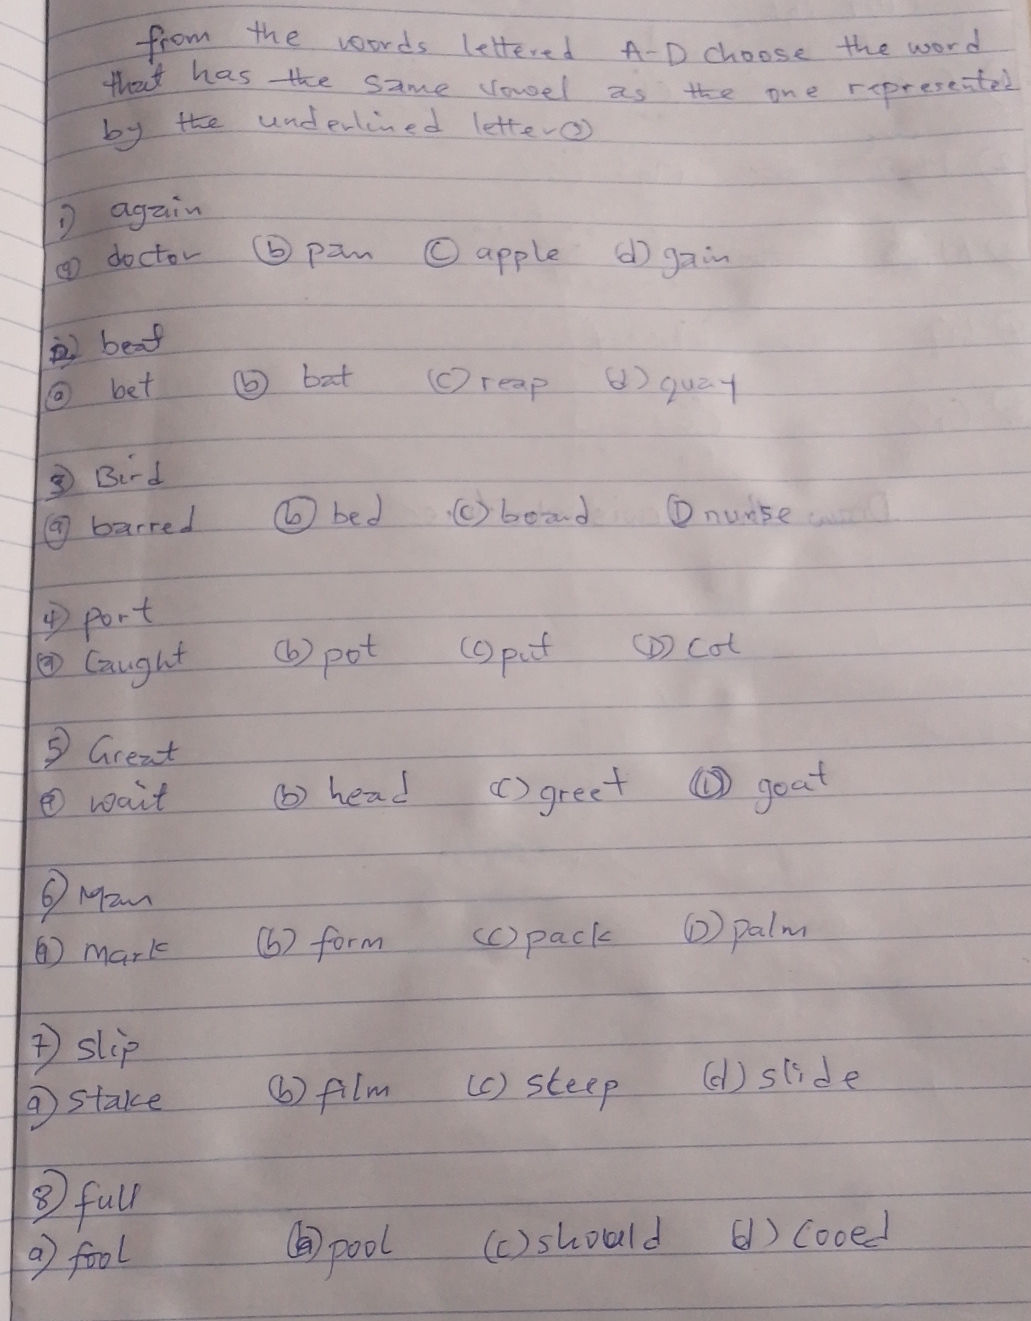 from the words lettered A-D choose the word
that has the same vowel as the one represented
by the underlined letter(s)
1) again
(a) doctor (b) pan (c) apple d) gain
2) beat
(a) bet (b) bat (c) reap d) quay
3) Bird
(a) barred (b) bed (c) board (D) nurse
4) port
(a) caught (b) pot (c) put (D) cot
5) Great
(a) wait (b) head (c) greet (D) goat
6) Man
(a) mark (b) form (c) pack (D) palm
7) slip
a) stake (b) film (c) steep (d) slide
8) full
a) fool (b) pool (c) should d) cooed